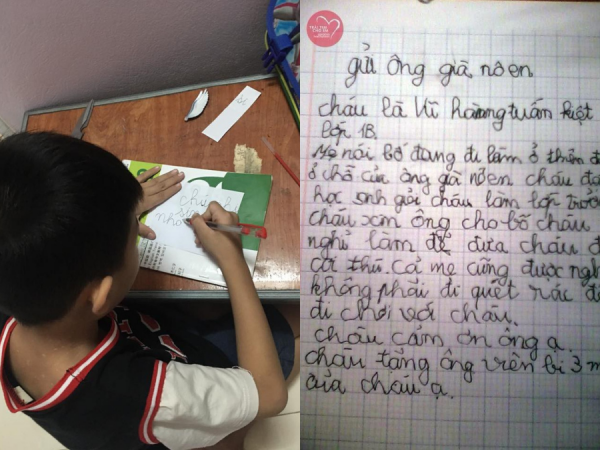 chú
nho
gửi ông già nôen
cháu là Vi hoàng tuấn kiệt
lớp 1B.
Mẹ nói bố đang đi làm ở thiên đ
ở chỗ của ông già nôen cháu đạ
học sinh giỏi cháu làm lớp trưởn
cháu xin ông cho bố cháu
nghỉ làm để đưa cháu đ
cả mẹ cũng được ngh
không phải đi quét rác để
đi chơi với cháu.
cháu cảm ơn ông ạ.
cháu tặng ông viên bi 3 m
của cháu ạ.